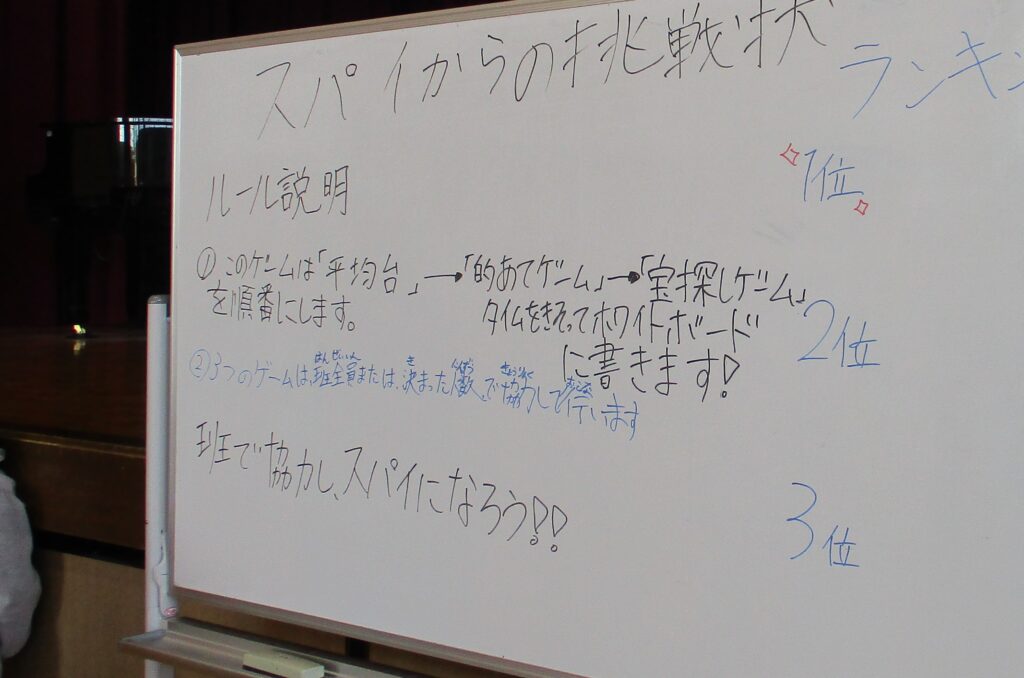 スパイからの挑戦状
ルール説明
①このゲームは「平均台」→「的あてゲーム」→「宝探しゲーム」
を順番にします。
タイムをきそってホワイトボード
に書きます!
はんぜんいん き にんずう きょうりょく おこな
②3つのゲームは、班全員または、決まった人数、で協力して行います
班で協力し、スパイになろう!!
ランキン
1位
2位
3位